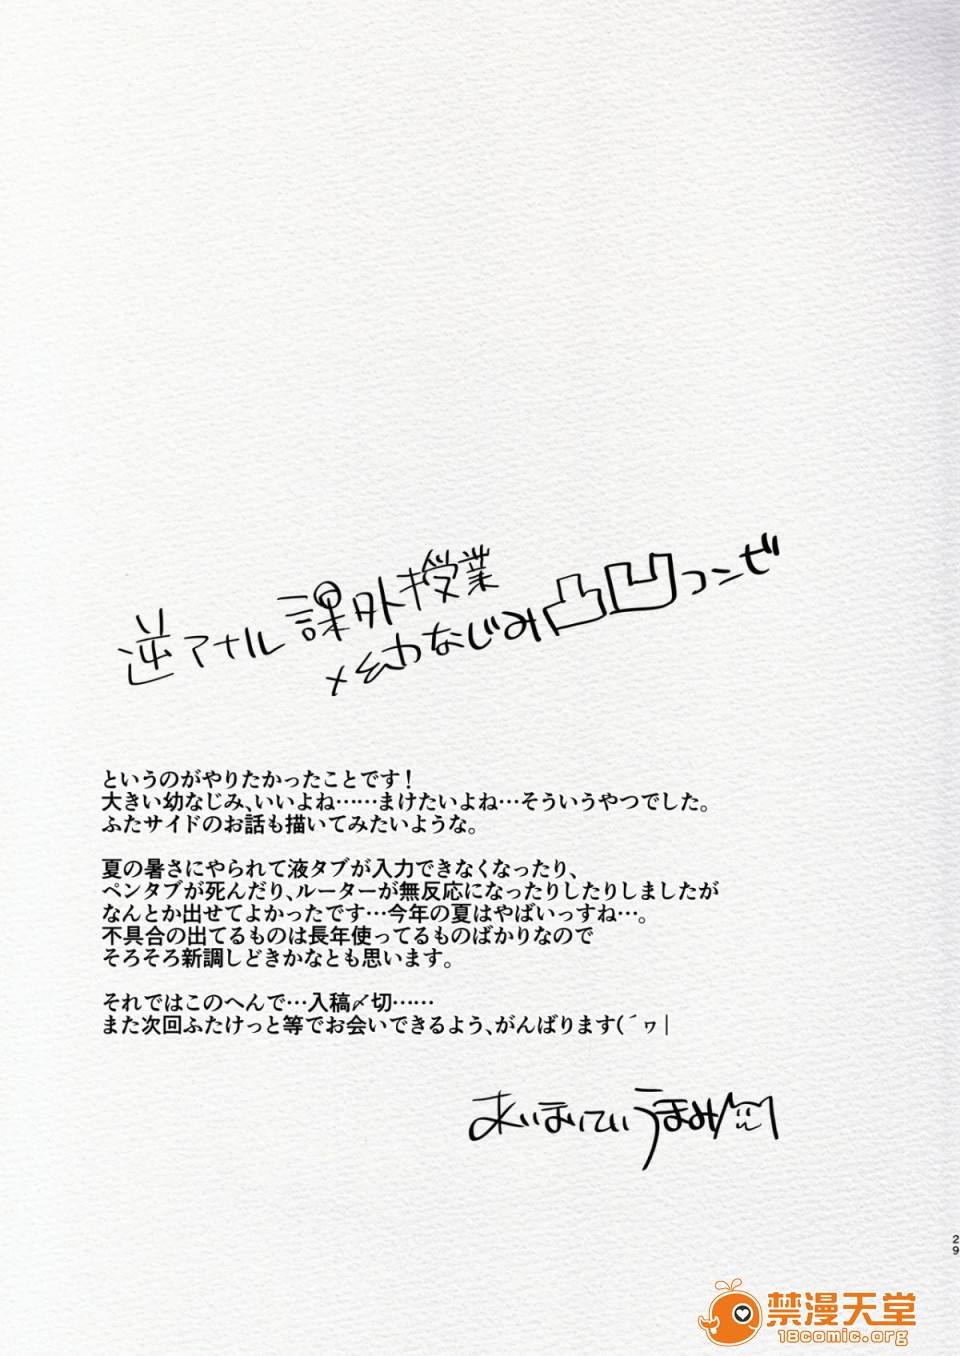 逆アナル課外授業
×幼なじみ凸凹コンビ
というのがやりたかったことです！
大きい幼なじみ、いいよね……まけたいよね…そういうやつでした。
ふたサイドのお話も描いてみたいような。
夏の暑さにやられて液タブが入力できなくなったり、
ペンタブが死んだり、ルーターが無反応になったりしたりしましたが
なんとか出せてよかったです…今年の夏はやばいっすね…。
不具合の出てるものは長年使ってるものばかりなので
そろそろ新調しどきかなとも思います。
それではこのへんで…入稿〆切……
また次回ふたけっと等でお会いできるよう、がんばります(´ヮ|
29
禁漫天堂
18comic.org